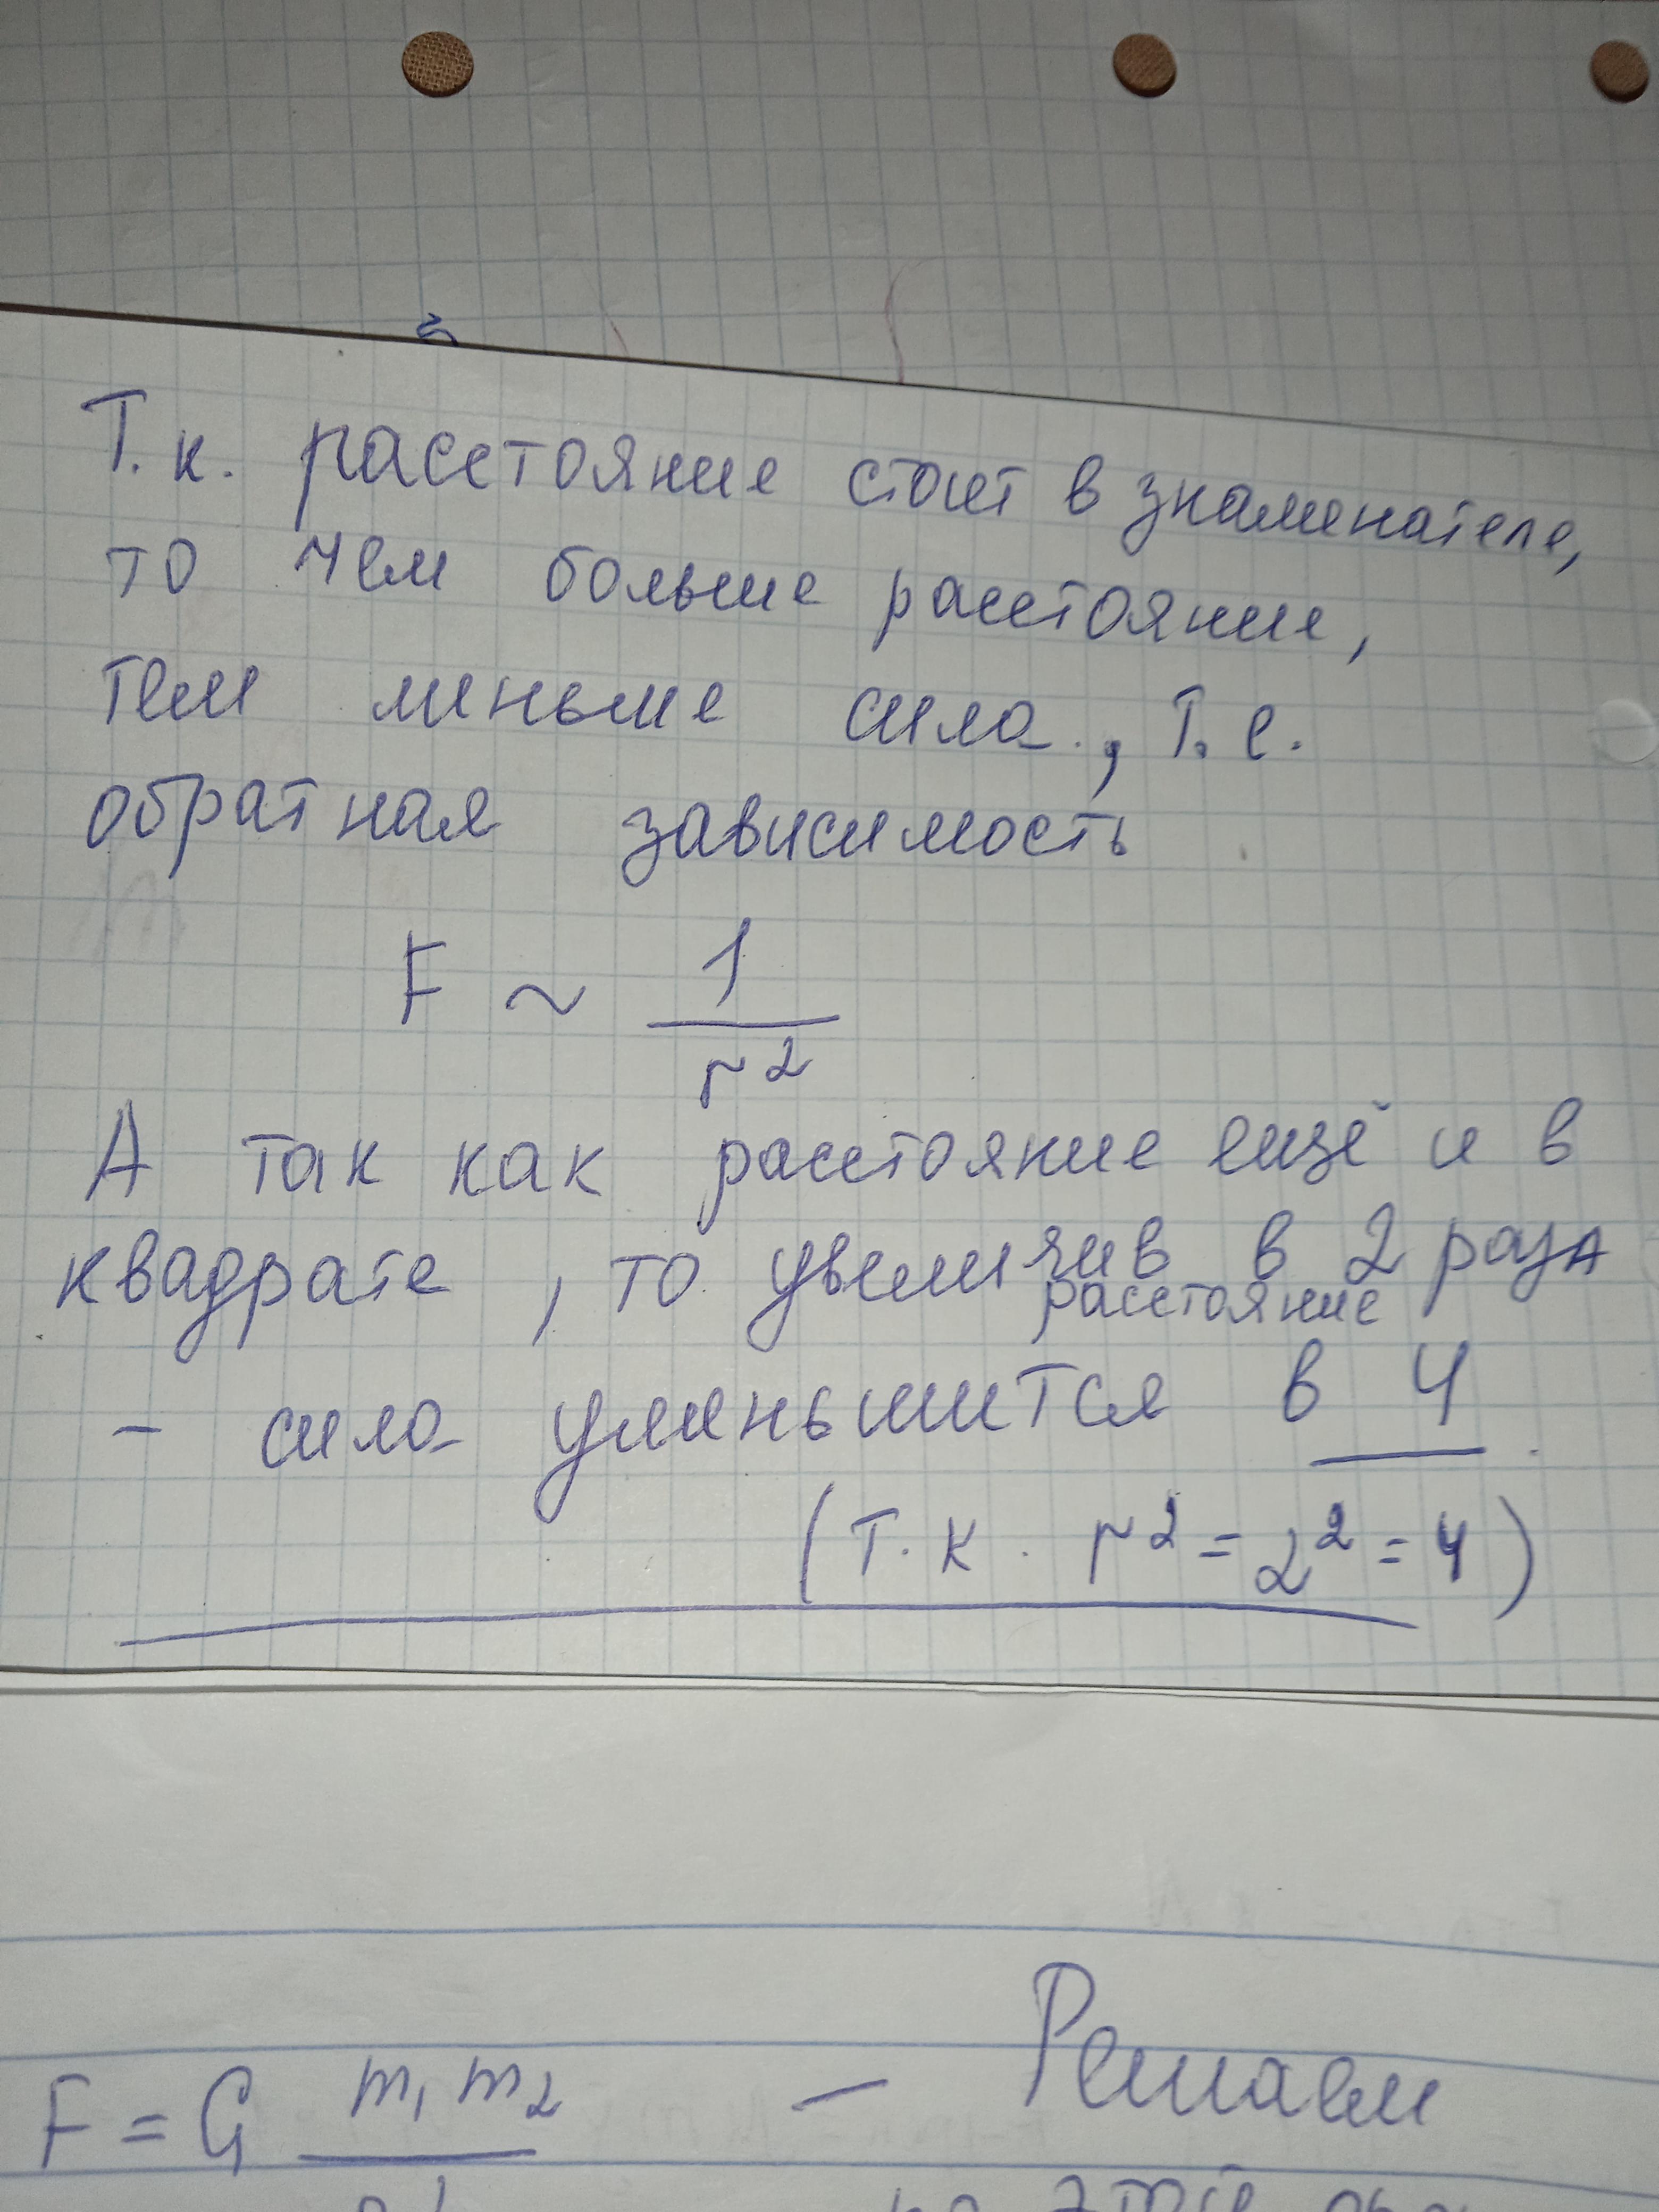 Т.к. расстояние стоит в знаменателе,
то чем больше расстояние,
тем меньше сила., т.е.
обратная зависимость
F ~ 1/r²
А так как расстояние ещё и в
квадрате, то увеличив в 2 раза
расстояние
- сила уменьшится в 4.
(т.к. r² = 2² = 4)
F = G m₁ m₂ — Решаем